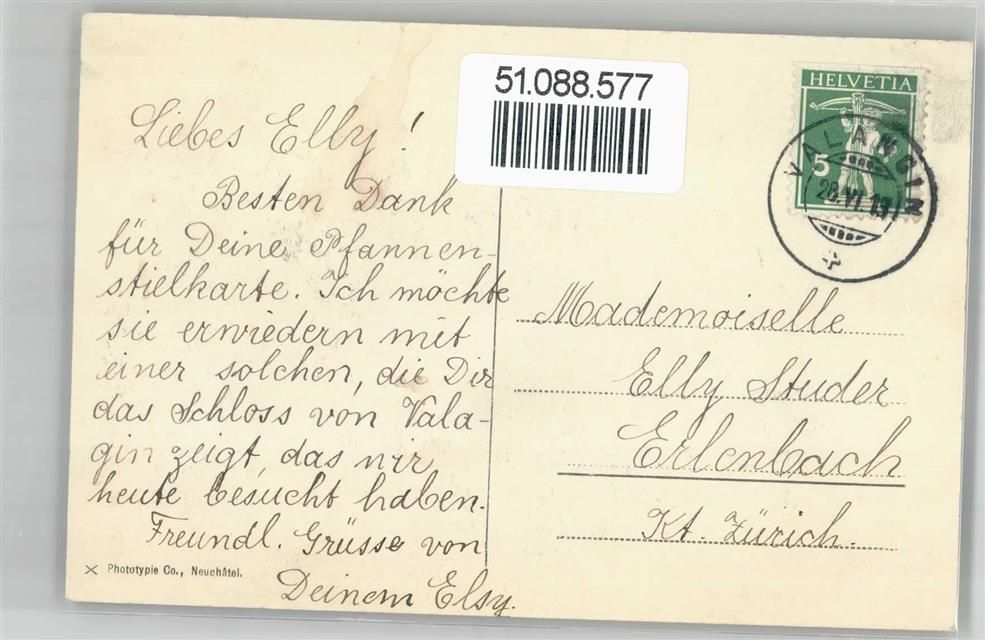 51.088.577
HELVETIA
5
VALANGIN
28.VI.13
Liebes Elly!
Besten Dank
für Deine Pfannen-
stielkarte. Ich möchte
sie erwiedern mit
einer solchen, die Dir
das Schloss von Vala-
gin zeigt, das wir
heute besucht haben.
Freundl. Grüsse von
Deinem Elsy.
Mademoiselle
Elly Studer
Erlenbach
Kt. Zürich.
Phototypie Co., Neuchâtel.